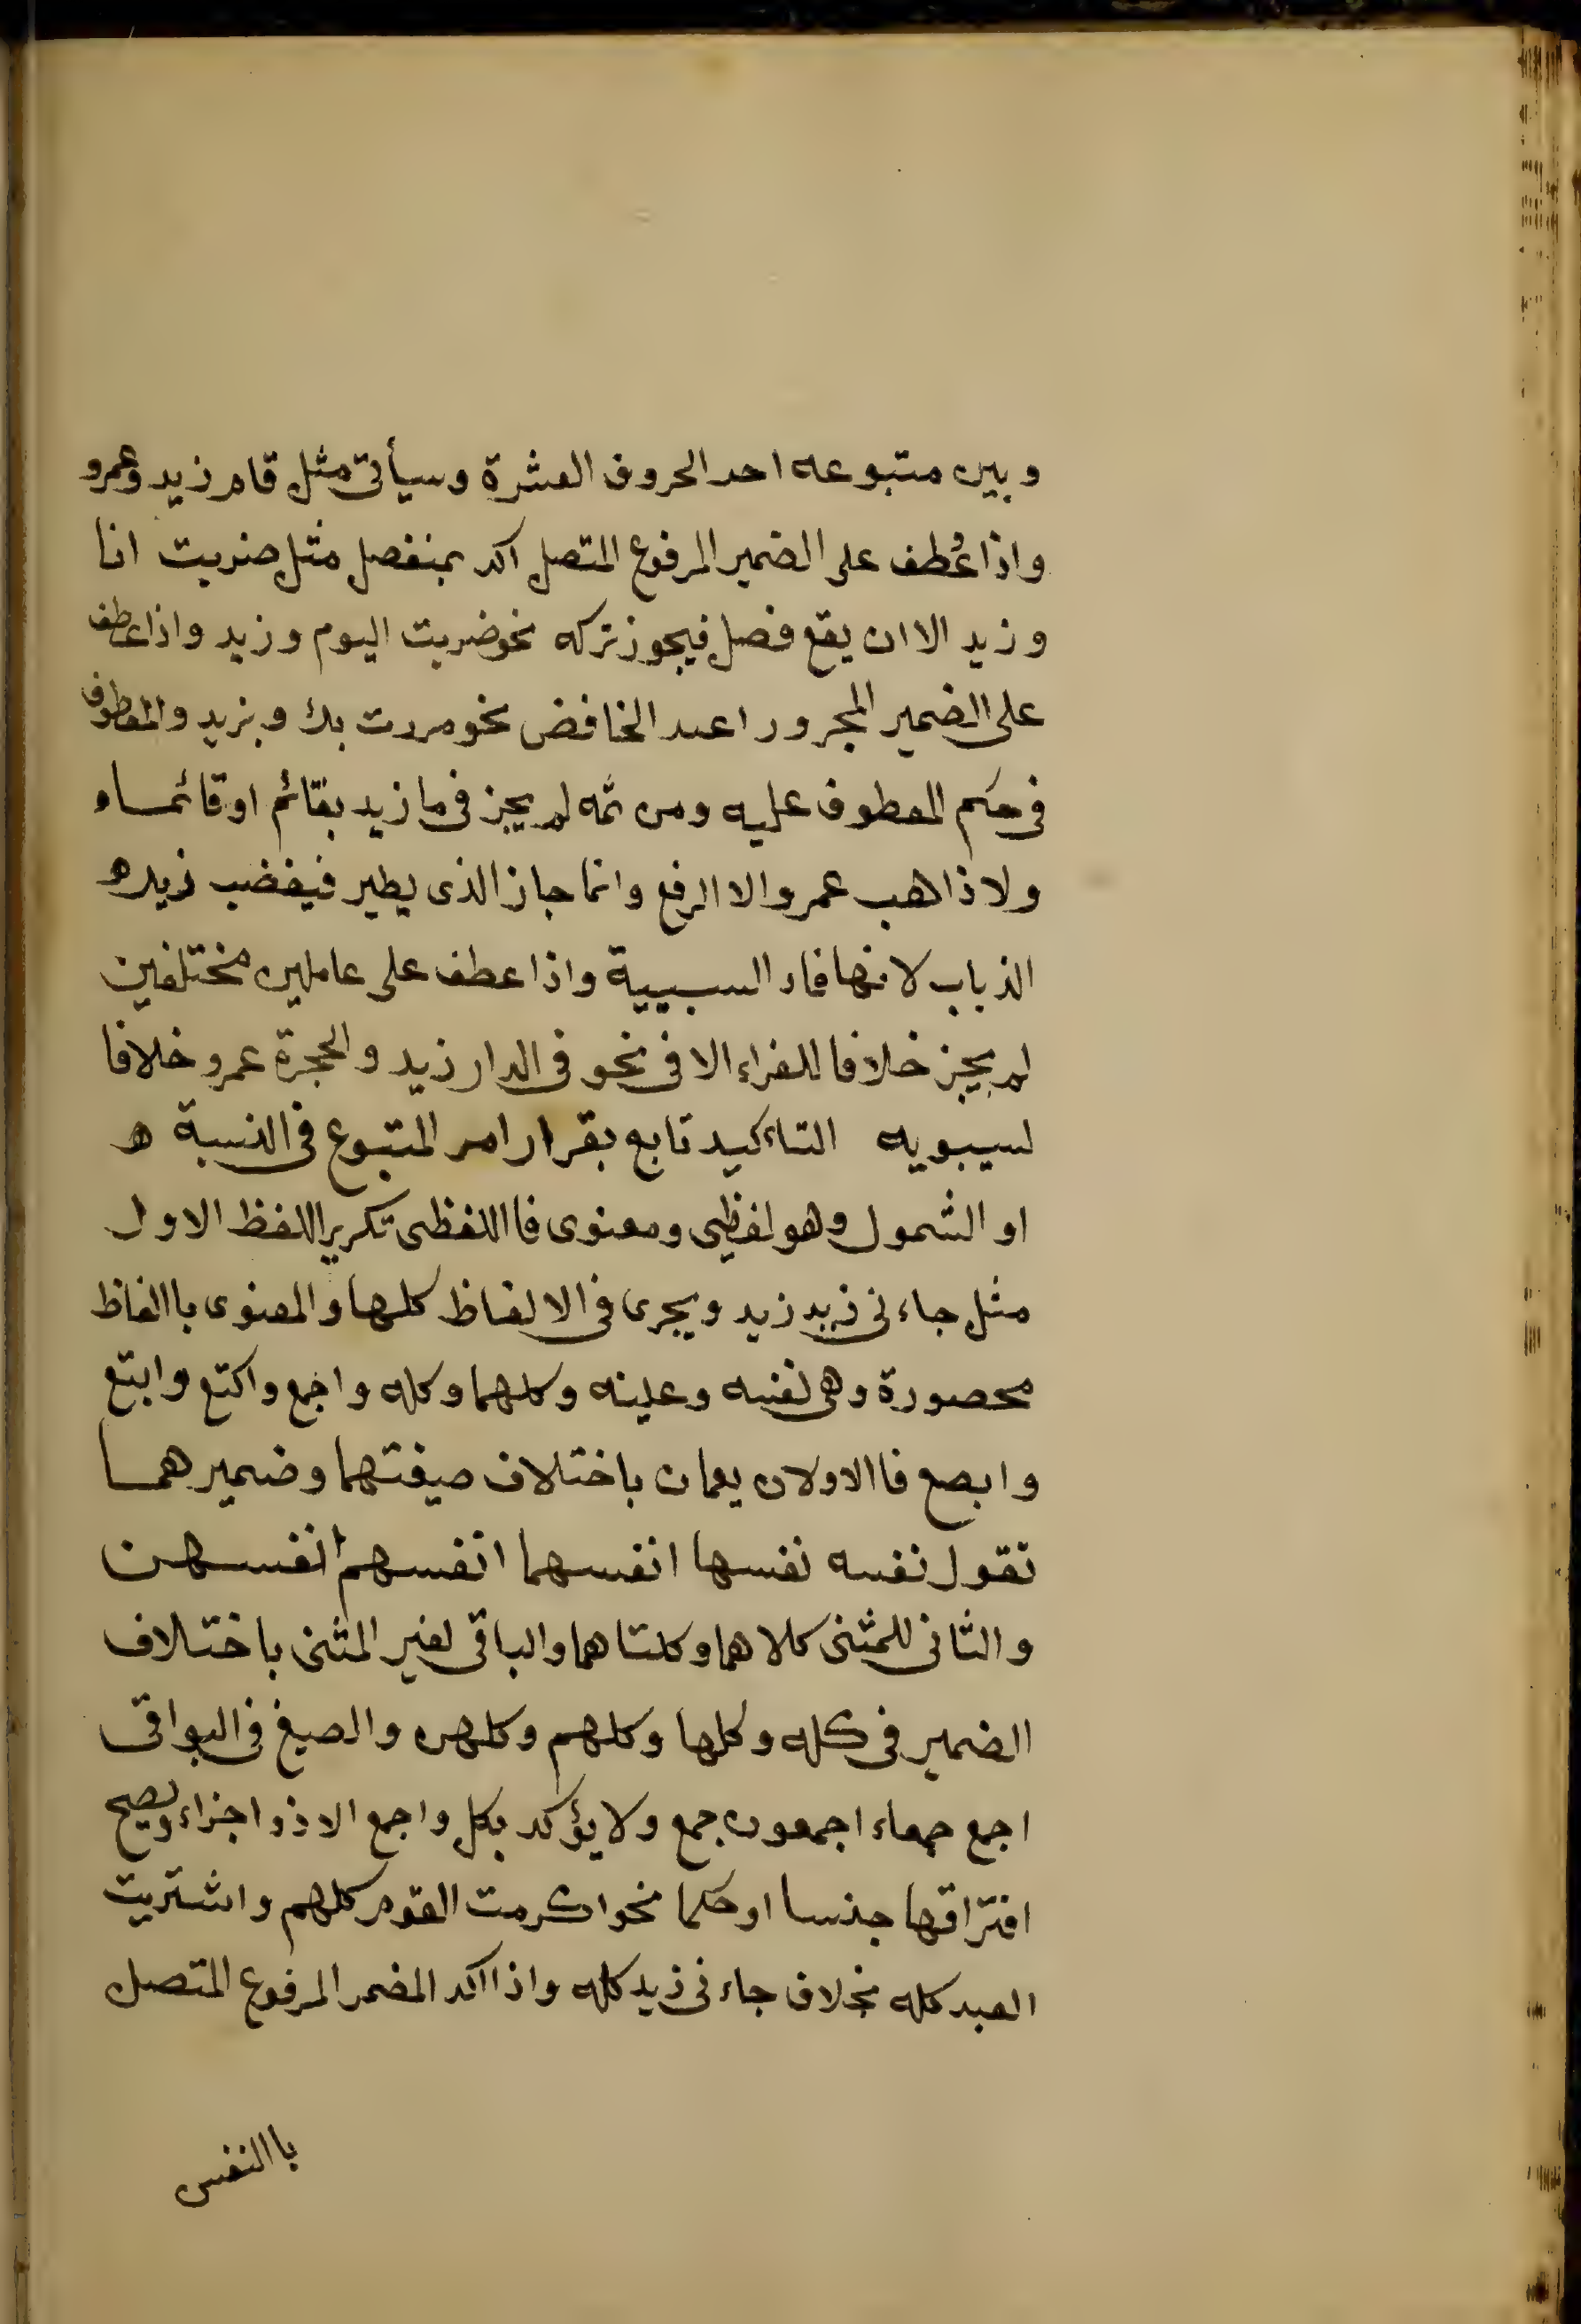 وبين متبوعه احد الحروف العشرة وسيأتى مثل قام زيد وعمرو
واذا عُطف على الضمير المرفوع المتصل اكد بمنفصل مثل ضربت انا
وزيد الا ان يقع فصل فيجوز تركه نحو ضربت اليوم وزيد واذا عطف
على الضمير المجرور اعيد الخافض نحو مررت بك وبزيد والمعطوف
فى حكم المعطوف عليه ومن ثمه لم يجز فى ما زيد بقائم او قائما
ولا ذاهب عمرو الا الرفع وانما جاز الذى يطير فيغضب زيد
الذباب لانها فاء السببية واذا عطف على عاملين مختلفين
لم يجز خلافا للفراء الا فى نحو فى الدار زيد والحجرة عمرو خلافا
لسيبويه التاكيد تابع يقرار امر المتبوع فى النسبة ه
او الشمول وهو لفظى ومعنوى فااللفظى تكرير اللفظ الاول
مثل جاءنى زيد زيد ويجرى فى الالفاظ كلها والمعنوى باالفاظ
محصورة وهى نفسه وعينه وكلهما وكله واجمع واكتع وابتع
وابصع فاالاولان يعمان باختلاف صيغتهما وضميرهما
تقول نفسه نفسها انفسهما انفسهم انفسهن
والثانى للمثنى كلاهما وكلتاهما والباقى لغير المثنى باختلاف
الضمير فى كله وكلها وكلهم وكلهن والصيغ فى البواقى
اجمع جمعاء اجمعون جمع ولا يؤكد بكل واجمع الا ذو اجزاء ويصح
افتراقها جنسا او حكما نحو اكرمت القوم كلهم واشتريت
العبد كله بخلاف جاءنى زيد كله واذا اكد المضمر المرفوع المتصل
باالنفس